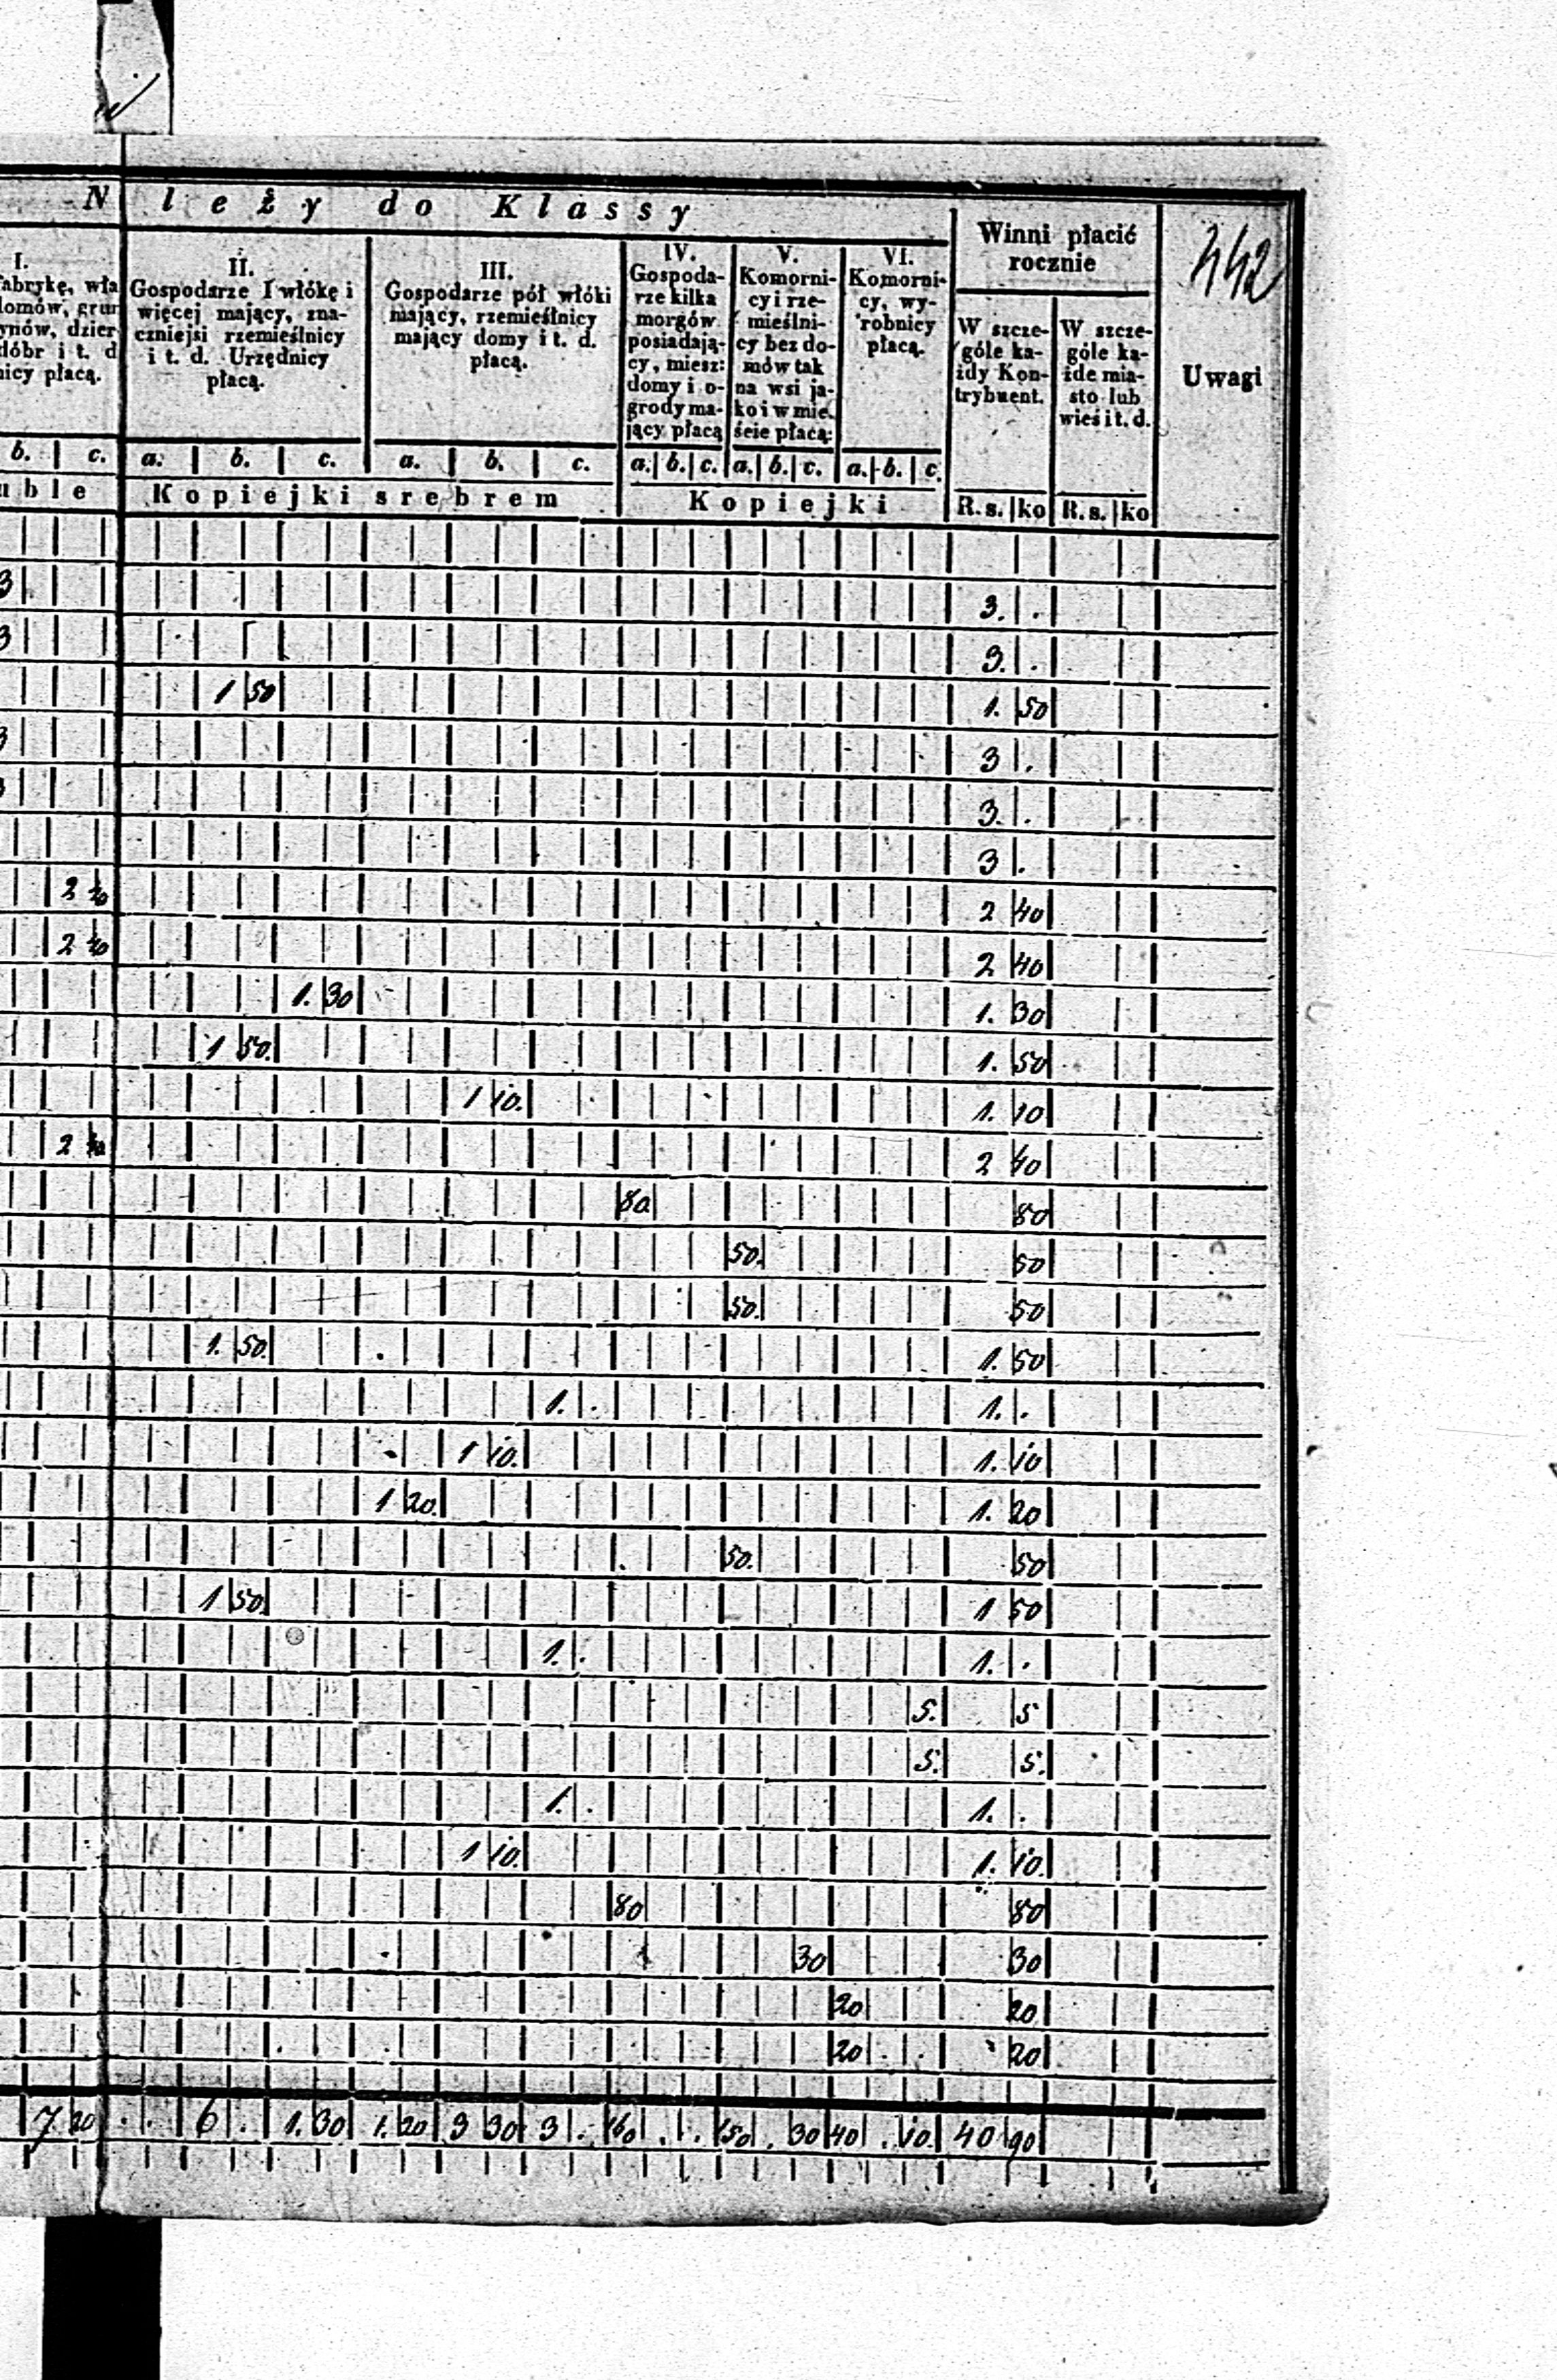 N leży do Klassy
Winni płacić rocznie
Uwagi
442
I.
fabrykę, wła
domów, grun
ynów, dzier
dóbr i t. d
nicy płacą.
II.
Gospodarze 1 włókę i
więcej mający, zna-
czniejsi rzemieślnicy
i t. d. Urzędnicy
płacą.
III.
Gospodarze pół włóki
mający, rzemieślnicy
mający domy i t. d.
płacą.
IV.
Gospoda-
rze kilka
morgów
posiadają-
cy, miesz:
domy i o-
grody ma-
jący płacą
V.
Komorni-
cy i rze-
mieślni-
cy bez do-
mów tak
na wsi ja-
ko i w mie-
ście płacą:
VI.
Komorni-
cy, wy-
robnicy
płacą.
W szcze-
góle ka-
żdy Kon-
trybuent.
W szcze-
góle ka-
żde mia-
sto lub
wieś i t. d.
b. c. a. b. c. a. b. c. a. b. c. a. b. c. a. b. c.
uble Kopiejki srebrem Kopiejki R.s. ko R.s. ko
3 3. .
3 3. .
1 50 1. 50
3 3 .
3 3. .
3 .
2 40 2 40
2 40 2 40
1. 30 1. 30
1 50. 1. 50
1 10. 1. 10
2 40 2 40
80 80
50. 50
50. 50
1. 50. 1. 50
1. . 1. .
1 10. 1. 10
1 20. 1. 20
50. 50
1 50 1 50
1. . 1. .
5. 5
5. 5.
1. . 1. .
1 10. 1. 10.
80 80
30 30
20 20
20 20
7 20 . . 6 . 1. 30 1. 20 3 30 3 . 160 . . 150 . 30 40 . 10. 40 90